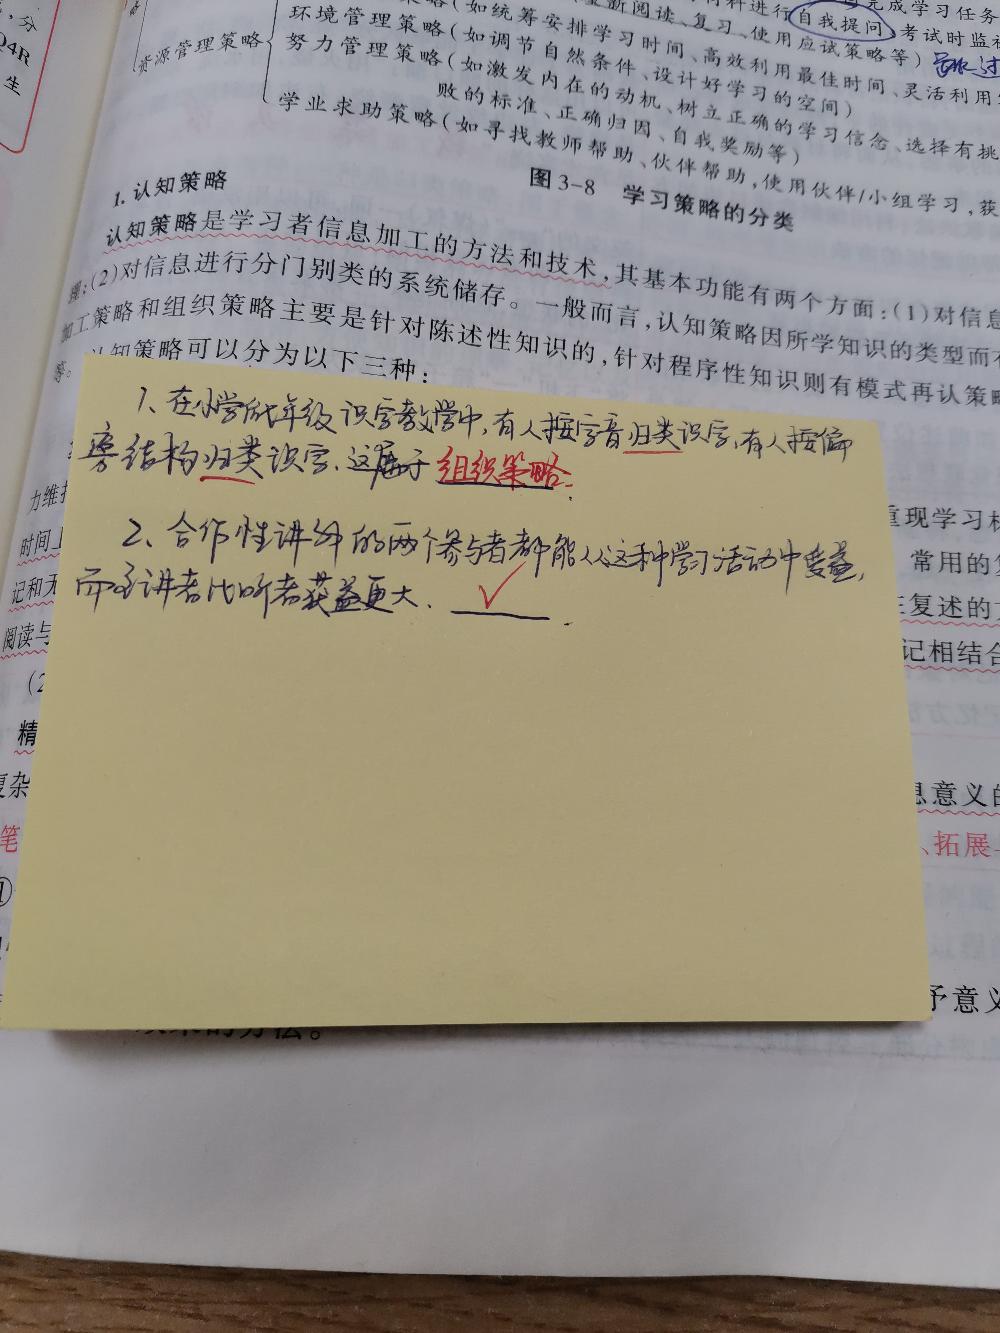 ，分
Q4R
生
新阅读、复习、使用应试策略等）
料进行自我提问 考试时监视
完成学习任务
资源管理策略
（如统筹安排学习时间、高效利用最佳时间、灵活利用
环境管理策略（如调节自然条件、设计好学习的空间）
努力管理策略（如激发内在的动机、树立正确的学习信念、选择有挑
败的标准、正确归因、自我奖励等）
学业求助策略（如寻找教师帮助、伙伴帮助，使用伙伴/小组学习，获
图 3-8 学习策略的分类
1. 认知策略
认知策略是学习者信息加工的方法和技术，其基本功能有两个方面：（1）对信息
；（2）对信息进行分门别类的系统储存。一般而言，认知策略因所学知识的类型而有
加工策略和组织策略主要是针对陈述性知识的，针对程序性知识则有模式再认策略
等。认知策略可以分为以下三种：
1、在小学低年级识字教学中，有人按字音归类识字，有人按偏
旁结构归类识字，这属于组织策略.
2、合作性讲解的两个参与者都能从这种学习活动中受益，
而主讲者比听者获益更大. √.
力维持
重现学习材
时间上
常用的复
记和无
在复述的
阅读与
记相结合
（2
忆方
精
复杂
息意义的
笔
、拓展
①
予意义
效果的方法。